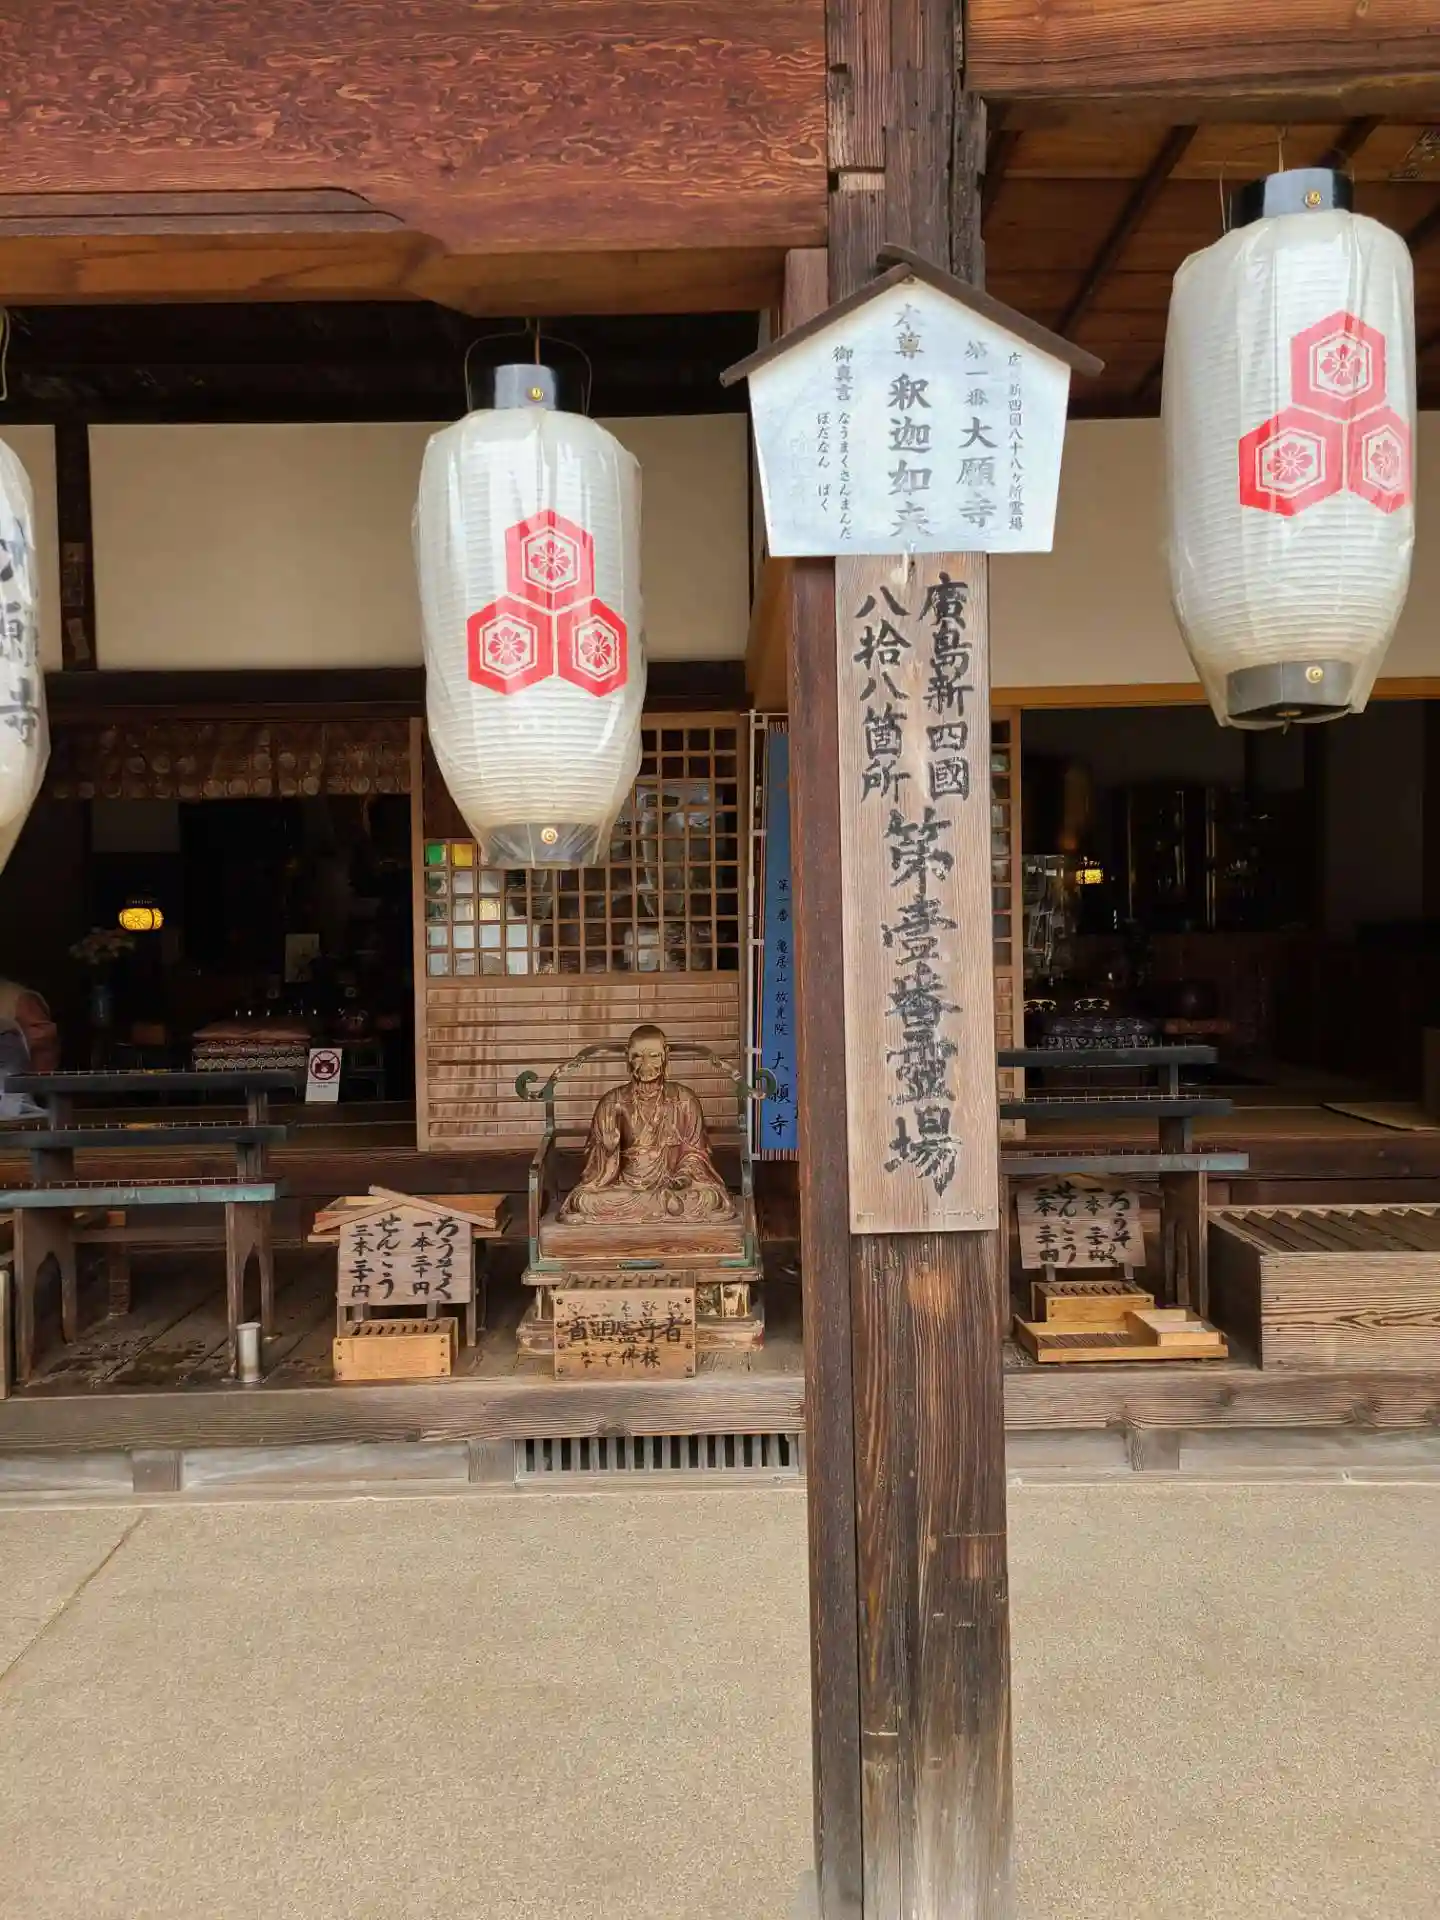 広島新四国八十八ヶ所霊場
第一番 大願寺
本尊 釈迦如来
御真言 なうまくさんまんだ
ぼだなん ばく
廣島新四國
八拾八箇所
第壹番霊場
第一番 亀居山 放光院 大願寺
大願寺
ろうそく
一本 三十円
せんこう
三本 三十円
賓頭盧尊者
なで佛様
ろうそく
一本 三十円
せんこう
三本 三十円